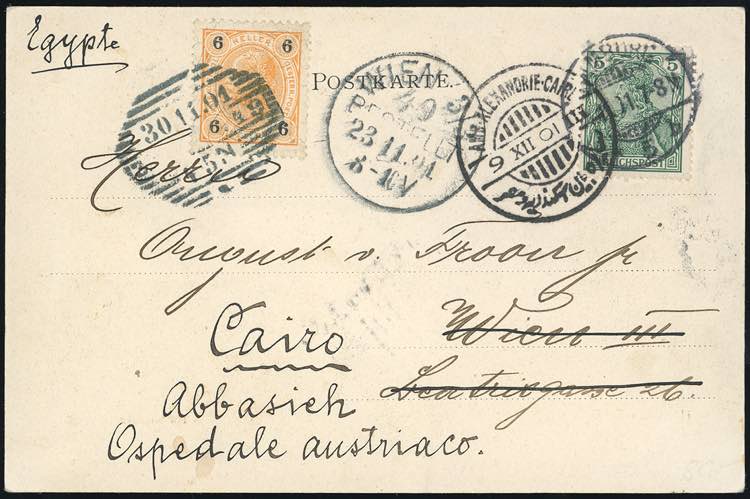 Egypte
6 HELLER 6
6 6
30.11.01
POSTKARTE.
WIEN
49
BESTELLT
23.11.01
5 5
REICHSPOST
AMB. ALEXANDRIE-CAIRE
9 XII 01
Herrn
August v. Froon jr
Wien III
Beatrixgasse 26.
Cairo
Abbasieh
Ospedale austriaco.